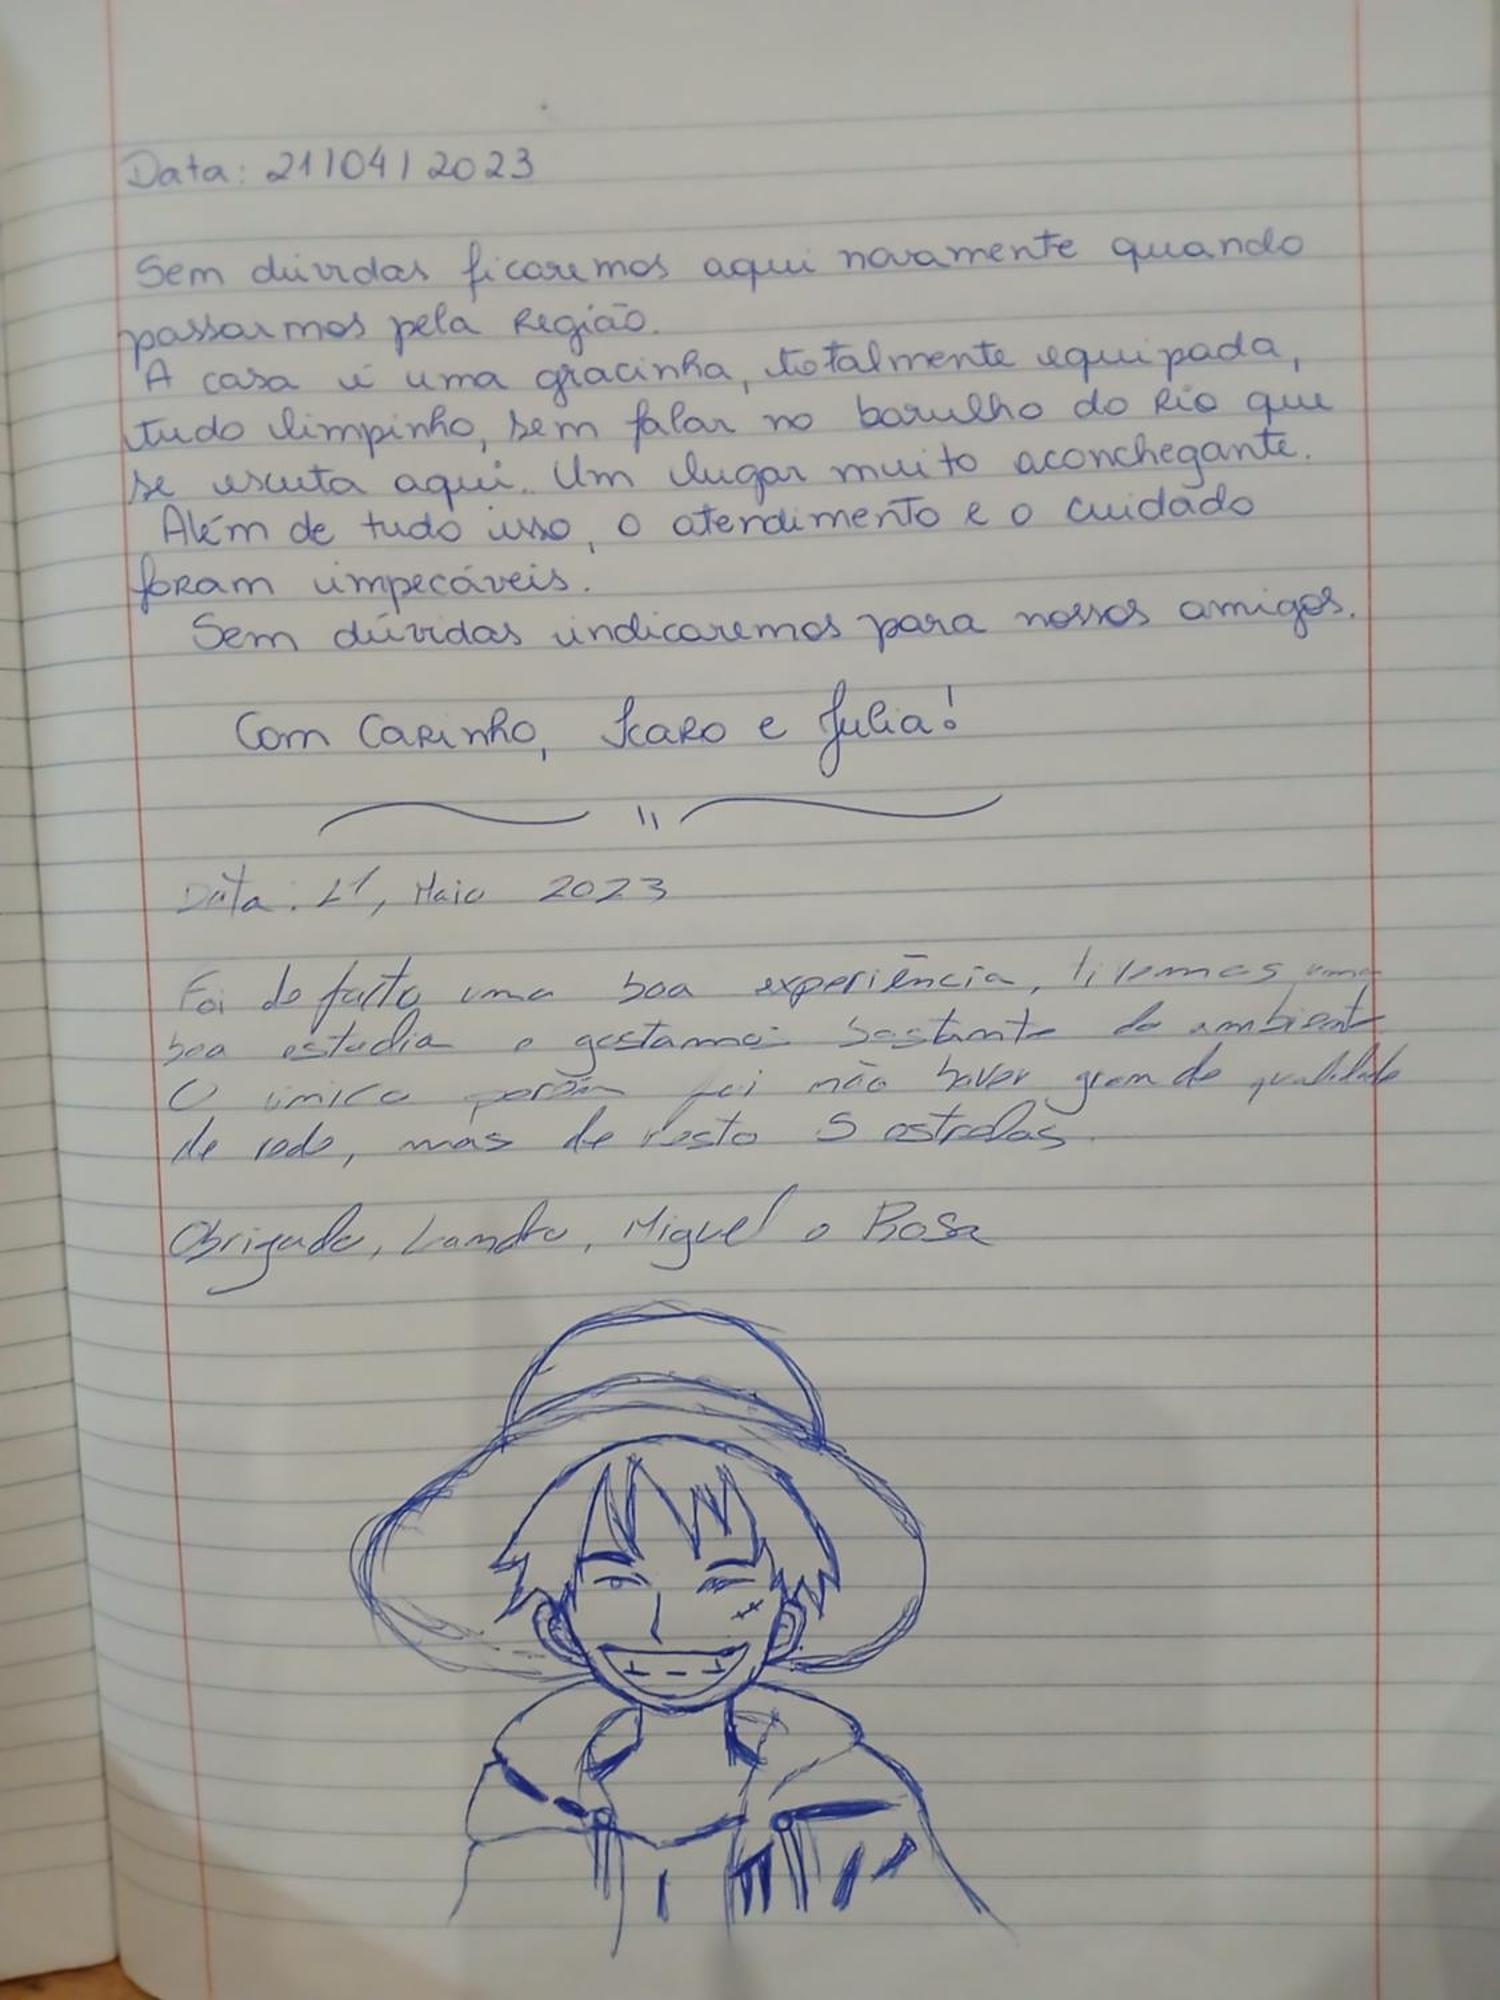 Data: 21/04/2023
Sem dúvidas ficaremos aqui novamente quando
passarmos pela Região.
A casa é uma gracinha, totalmente equipada,
tudo limpinho, sem falar no barulho do Rio que
se escuta aqui. Um lugar muito aconchegante.
Além de tudo isso, o atendimento e o cuidado
foram impecáveis.
Sem dúvidas indicaremos para nossos amigos.
Com Carinho, Icaro e Julia!
Data: 21, Maio 2023
Foi de facto uma boa experiência, tivemos uma
boa estadia e gostamos bastante do ambiente
O único porém foi não haver grande qualidade
de rede, mas de resto 5 estrelas.
Obrigado, Leandro, Miguel e Rosa